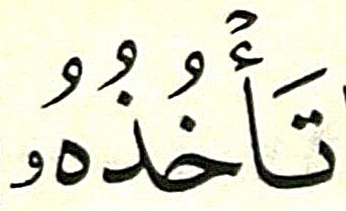 تَأْخُذُهُۥ